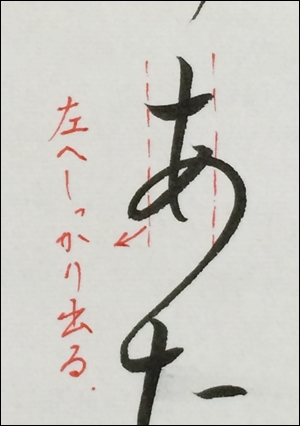 あた
左へしっかり出る.